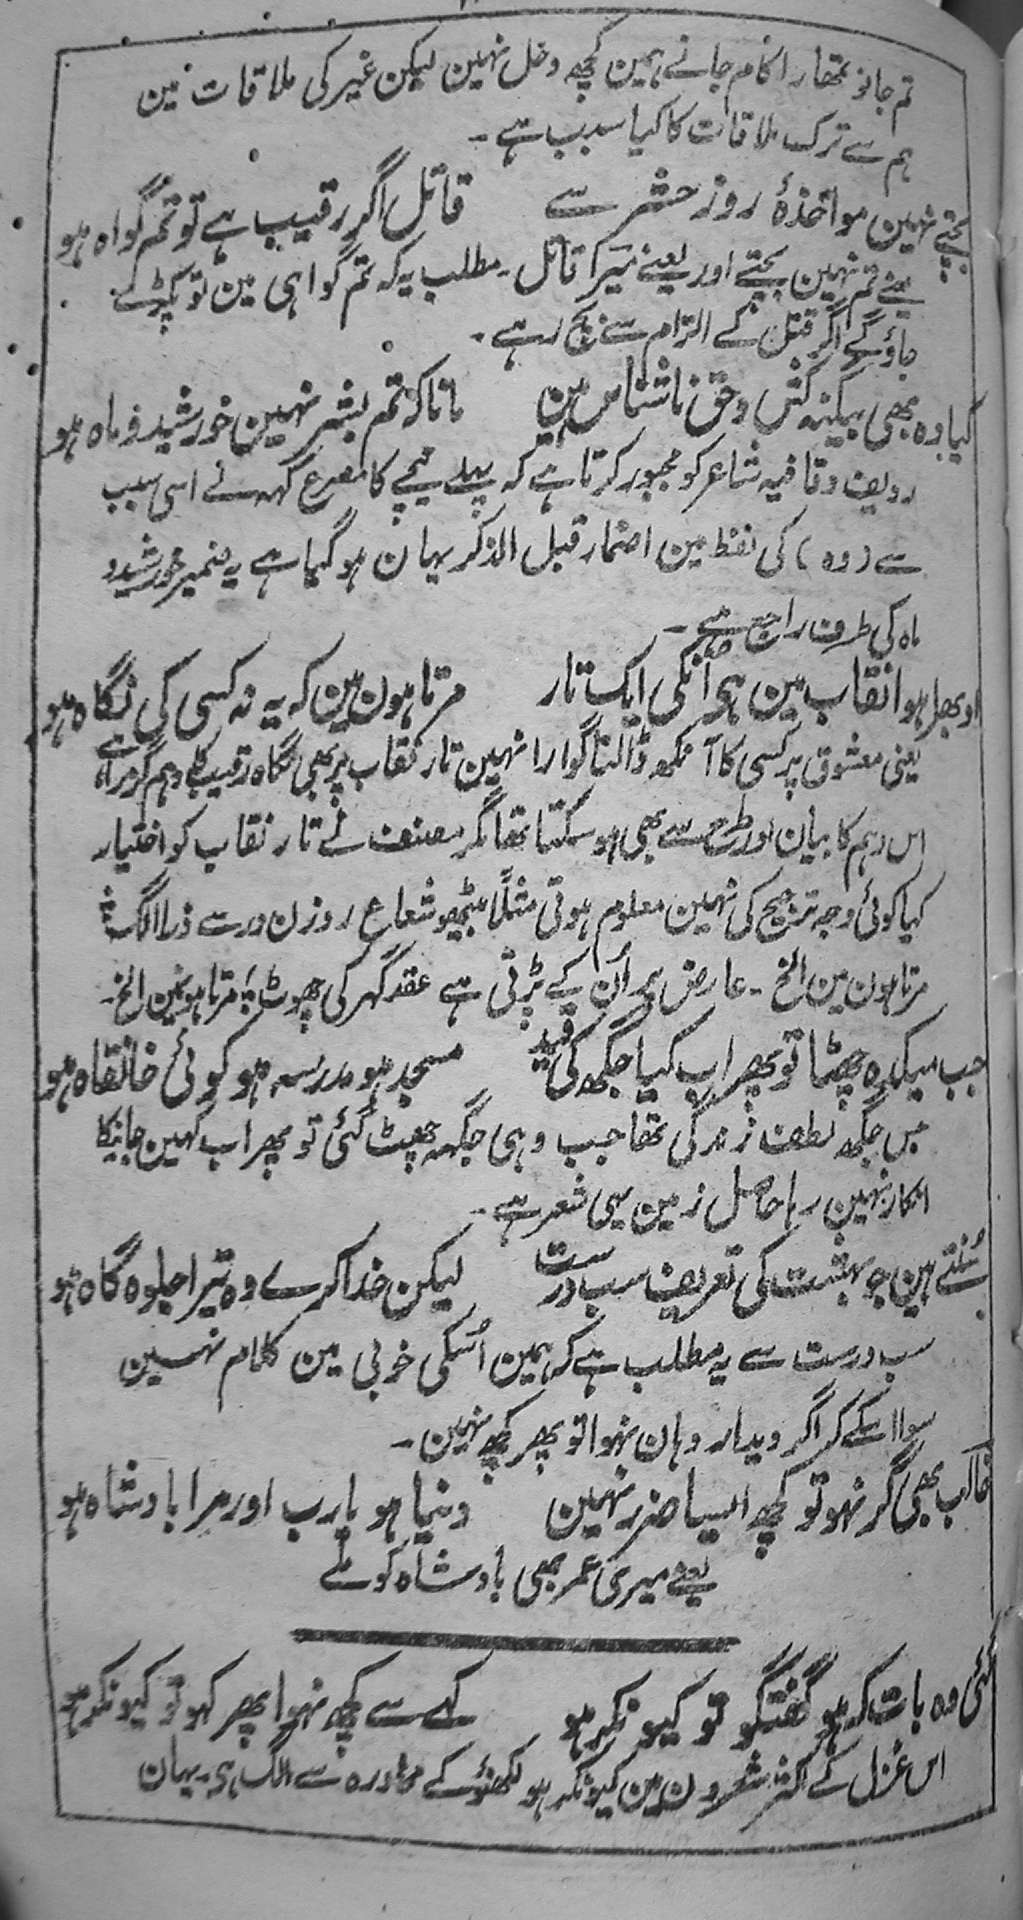 تم جانو تمھارا کام جانے ہمین کچھ دخل نہین لیکن غیر کی ملاقات مین
ہم سے ترک ملاقات کا کیا سبب ہے ۔
بچتے نہین مواخذۂ روز حشر سے قاتل اگر رقیب ہے تو تم گواہ ہو
یعنے تم نہین بچتے اور یعنے میرا قاتل ۔ مطلب یہ کہ تم گواہی مین تو پکڑے
جاؤگے اگر قتل کے الزام سے بچ رہے ۔
کیا وہ بھی بیگنہ کش و حق ناشناس ہین مانا کہ تم بشر نہین خورشید و ماہ ہو
ردیف و قافیہ شاعر کو مجبور کرتا ہے کہ پہلے نیچے کا مصرع کہہ لے اسی سبب
سے (وہ) کی لفظ مین اضمار قبل الذکر یہان ہو گیا ہے یہ ضمیر خورشید و
ماہ کی طرف راجع ہے ۔
اوبھرا ہوا نقاب مین ہی انکی ایک تار مرتا ہون مین کہ یہ نہ کسی کی نگاہ ہو
یعنی معشوق پر کسی کا آنکھ ڈالنا گوارا نہین تار نقاب پر بھی نگاہ رقیب کا وہم گزرا ہے
اس وہم کا بیان اور طرح سے بھی ہو سکتا تھا مگر مصنف نے تار نقاب کو اختیار
کیا کوئی وجہ ترجیح کی نہین معلوم ہوتی مثلاً بیٹھو شعاع روزن در سے ذرا الگ
مرتا ہون مین الخ ۔ عارض پر اُن کے پڑتی ہے عقد گہر کی چھوٹ ؛ مرتا ہون مین الخ ۔
جب میکدہ چھٹا تو پھر اب کیا جگھ کی قید مسجد ہو مدرسہ ہو کوئی خانقاہ ہو
جس جگھ لطف زندگی تھا جب وہی جگہہ چھٹ گئی تو پھر اب کہین جانیکا
انکار نہین رہا حاصل زمین یہی شعر ہے ۔
سُنتے ہین جو بہشت کی تعریف سب درست لیکن خدا کرے وہ تیرا جلوہ گاہ ہو
سب درست سے یہ مطلب ہے کہ ہمین اُسکی خوبی مین کلام نہین
سوا اسکے کہ اگر دیدار وہان نہوا تو پھر کچھ نہین ۔
غالب بھی گر نہو تو کچھ ایسا ضرر نہین دنیا ہو یارب اور مرا بادشاہ ہو
یعنے میری عمر بھی بادشاہ کو ملے
گئی وہ بات کہ ہو گفتگو تو کیونکر ہو کہے سے کچھ نہوا پھر کہو تو کیونکر ہو
اس غزل کے اکثر شعرون مین کیونکر ہو لکھنؤ کے محاورہ سے الگ ہی یہان